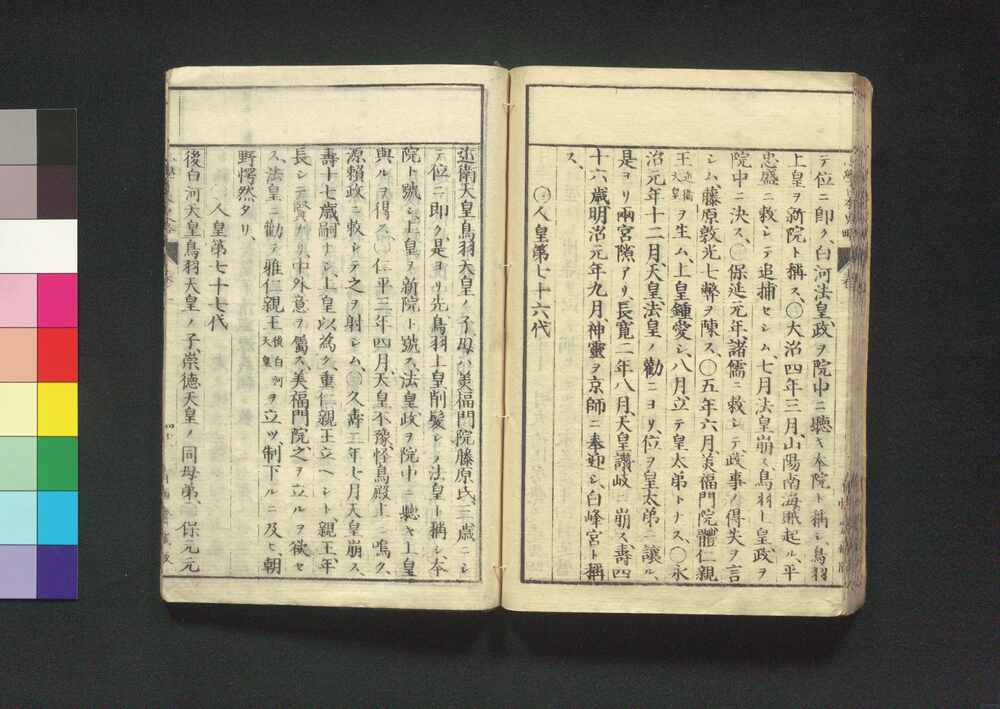 テ位ニ即ク、白河法皇、政ヲ院中ニ聴キ本院ト稱シ、鳥羽
上皇ヲ新院ト稱ス、〇大治四年三月、山陽南海賊起ル、平
忠盛ニ敕シテ追捕セシム、七月法皇崩ス、鳥羽上皇政ヲ
院中ニ決ス、〇保延元年、諸儒ニ敕シテ政事ノ得失ヲ言
シム、藤原敦光七弊ヲ陳ス、〇五年六月、美福門院、體仁親
王近衛天皇ヲ生ム、上皇鍾愛シ、八月立テ皇太弟トナス、〇永
治元年十二月天皇、法皇ノ勸ニヨリ、位ヲ皇太弟ニ讓ル、
是ヨリ兩宮隙アリ、長寛二年八月、天皇讃岐ニ崩ス、壽四
十六歳、明治元年九月、神靈ヲ京師ニ奉迎シ、白峰宮ト稱
ス、
〇人皇第七十六代
近衛天皇、鳥羽天皇ノ子、母ハ美福門院藤原氏、三歳ニシ
テ位ニ即ク、是ヨリ先、鳥羽上皇削髪シ、法皇ト稱シ、本
院ト號シ、上皇ヲ新院ト號ス、法皇、政ヲ院中ニ聴キ、上皇
與ルヲ得ス、〇仁平三年四月、天皇不豫、怪鳥殿上ニ鳴ク、
源賴政ニ敕シテ之ヲ射シム、〇久壽二年七月天皇崩ス、
壽十七歳、嗣ナシ、上皇以為ク、重仁親王立ヘシト、親王、年
長シテ賢ナリ、中外意ヲ屬ス、美福門院、之ヲ立ルヲ欲セ
ス、法皇ニ勸テ雅仁親王後白河天皇ヲ立ツ、制下ルニ及ヒ、朝
野愕然タリ、
〇人皇第七十七代
後白河天皇、鳥羽天皇ノ子、崇徳天皇ノ同母弟、保元元